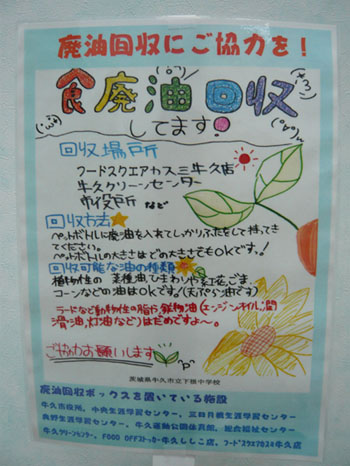 廃油回収にご協力を!
食廃油回収
してます!
回収場所
フードスクエアカスミ牛久店
牛久クリーンセンター
市役所 など
回収方法
ペットボトルに廃油を入れてしっかりふたをして持ってき
てください。
ペットボトルの大きさはどの大きさでもOKです。!
回収可能な油の種類
植物性の 菜種油、ひまわりや紅花、ごま、
コーンなどの油はOKです。(天ぷら油です)
ラードなど動物性の脂や鉱物油(エンジンオイル、潤
滑油、灯油など)はだめですよ~。
ご協力お願いします
茨城県牛久市立下根中学校
廃油回収ボックスを置いている施設
牛久市役所、中央生涯学習センター、三日月橋生涯学習センター
奥野生涯学習センター、牛久運動公園体育館、総合福祉センター
牛久クリーンセンター、FOOD OFFストッカー牛久ししこ店、フードスクエアカスミ牛久店